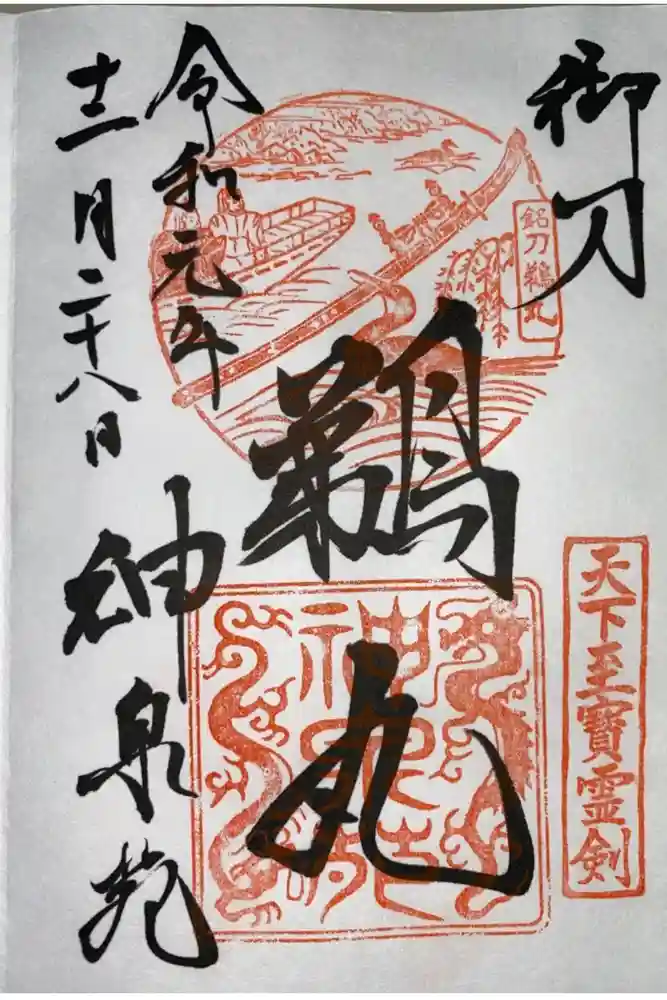 御刀
天下至寶霊剣
銘刀鵜丸
鵜丸
神泉苑
令和元年
十二月二十八日
神泉苑